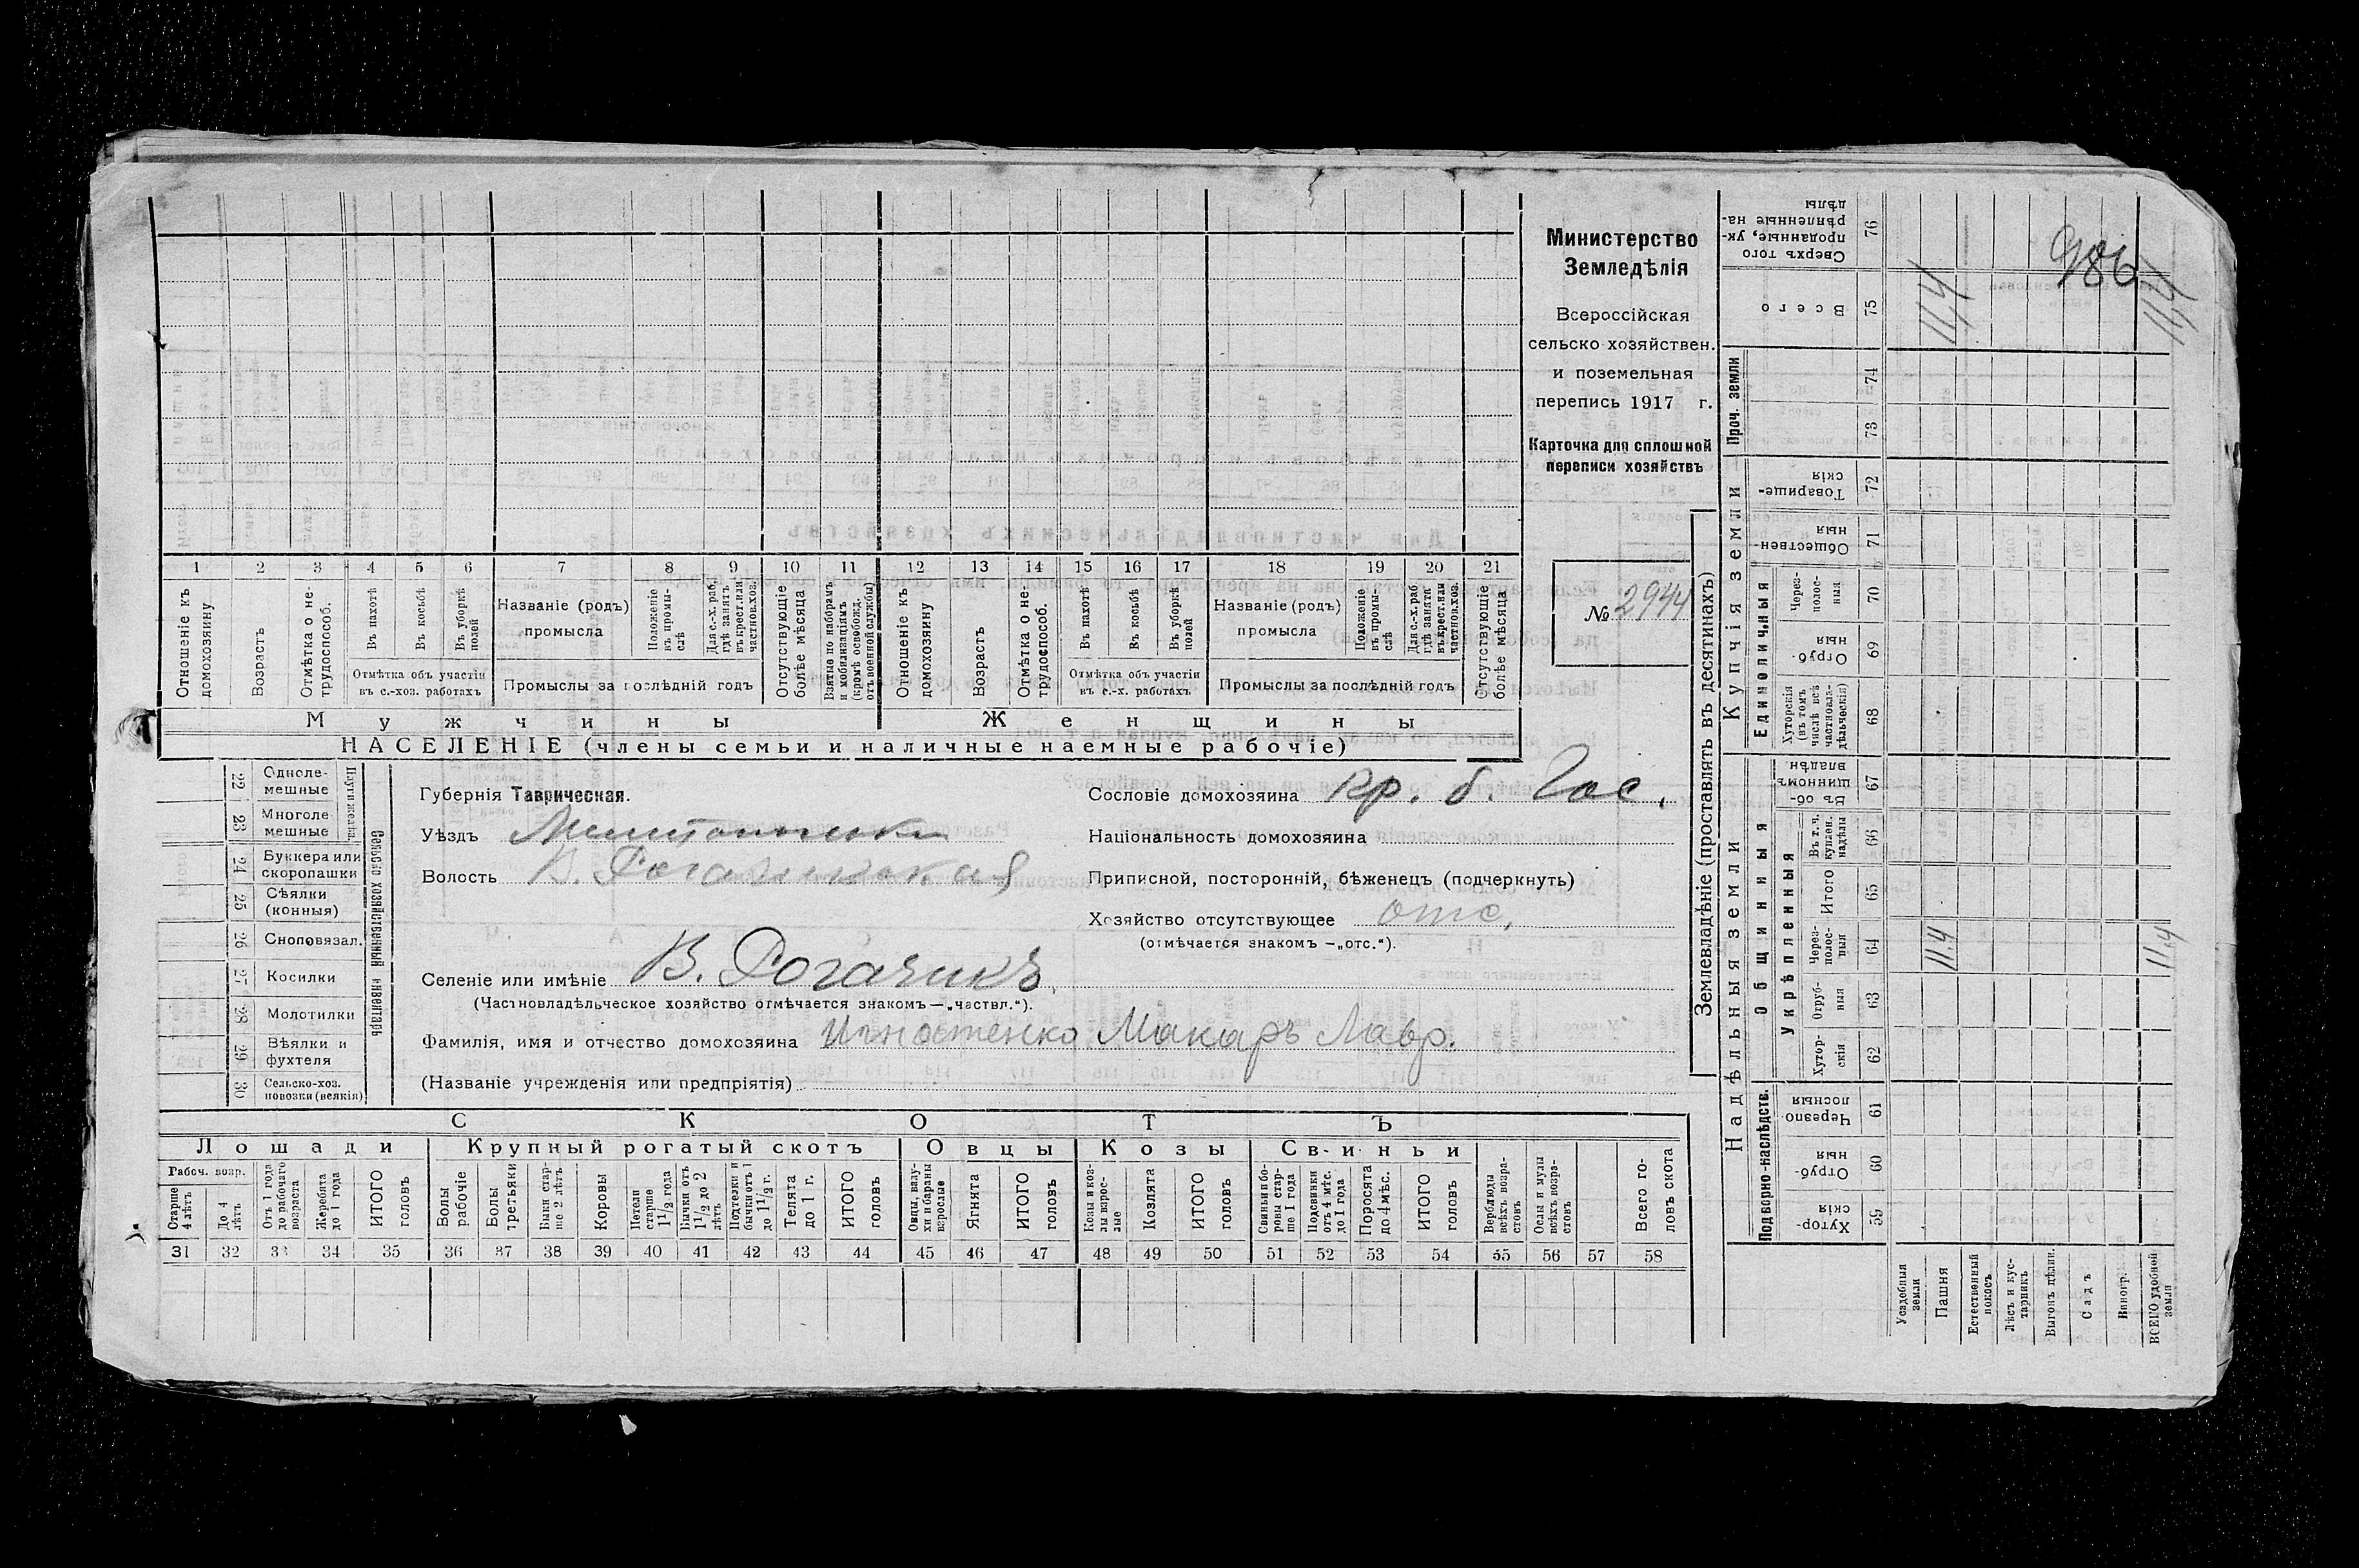 1 2 3 4 5 6 7 8 9 10 11 12 13 14 15 16 17 18 19 20 21
Отношеніе къ домохозяину
Возрастъ
Отмѣтка о не-
трудоспособ.
Въ пахотѣ
Въ косьбѣ
Въ уборкѣ
полей
Отмѣтка объ участіи
въ с.-хоз. работахъ
Названіе (родъ)
промысла
Положеніе
въ промы-
слѣ
Для с.-х. раб.
гдѣ занятъ
въ крест. или
частнов. хоз.
Промыслы за послѣдній годъ
Отсутствующіе
болѣе мѣсяца
Взятые по наборамъ
и мобилизаціямъ
(кромѣ освобожд.
отъ военной службы)
Отношеніе къ
домохозяину
Возрастъ
Отмѣтка о не-
трудоспособ.
Въ пахотѣ
Въ косьбѣ
Въ уборкѣ
полей
Отмѣтка объ участіи
въ с.-х. работахъ
Названіе (родъ)
промысла
Положеніе
въ промы-
слѣ
Для с.-х. раб.
гдѣ занята
въ крест. или
частнов. хоз.
Промыслы за послѣдній годъ
Отсутствующіе
болѣе мѣсяца
Мужчины
Женщины
НАСЕЛЕНІЕ (члены семьи и наличные наемные рабочіе)
Министерство
Земледѣлія
Всероссійская
сельско хозяйствен.
и поземельная
перепись 1917 г.
Карточка для сплошной
переписи хозяйствъ
№ 2944
22 Одноле-
мешные
23 Многоле-
мешные
24 Буккера или
скоропашки
25 Сѣялки
(конныя)
26 Сноповязал.
27 Косилки
28 Молотилки
29 Вѣялки и
фухтеля
30 Сельско-хоз.
повозки (всякія)
Сельско хозяйственный инвентарь
Губернія Таврическая.
Уѣздъ
Волость В. Рогачикская
Селеніе или имѣніе В. Рогачикъ
(Частновладѣльческое хозяйство отмѣчается знакомъ—„частвл.“).
Фамилія, имя и отчество домохозяина Игнатенко Макаръ Лавр.
(Названіе учрежденія или предпріятія)
Сословіе домохозяина кр. б. Гос.
Національность домохозяина
Приписной, посторонній, бѣженецъ (подчеркнуть)
Хозяйство отсутствующее отс.
(отмѣчается знакомъ —„отс.“).
СКОТЪ
Лошади
Крупный рогатый скотъ
Овцы
Козы
Свиньи
Рабоч. возр.
Старше
4 лѣтъ
До 4
лѣтъ
Отъ 1 года
до рабочаго
возраста
Жеребята
до 1 года
ИТОГО
головъ
Волы
рабочіе
Волы
третьяки
Быки стар-
ше 2 лѣтъ
Коровы
Нетели
старше
1 1/2 года
Бычки отъ
1 1/2 до 2
лѣтъ
Подтелки и
бычки отъ 1
до 1 1/2 г.
Телята
до 1 г.
ИТОГО
головъ
Овцы, валу-
хи и бараны
взрослые
Ягнята
ИТОГО
головъ
Козы и коз-
лы взрос-
лые
Козлята
ИТОГО
головъ
Свиньи и бо-
ровы стар-
ше 1 года
Подсвинки
отъ 4 мѣс.
до 1 года
Поросята
до 4 мѣс.
ИТОГО
головъ
Верблюды
всѣхъ возра-
стовъ
Ослы и мулы
всѣхъ возра-
стовъ
Всего го-
ловъ скота
31 32 33 34 35 36 37 38 39 40 41 42 43 44 45 46 47 48 49 50 51 52 53 54 55 56 57 58
Землевладѣніе (проставлять въ десятинахъ)
Сверхъ того
проданные, ук-
рѣпленные на-
дѣлы
76
Всего
75
11,4
986
11,4
Проч. земли
74
73
Купчія земли
Товарище-
скія
72
Обществен-
ныя
71
Единоличныя
Через-
полос-
ныя
70
Отруб-
ныя
69
Хуторскія
(въ томъ
числѣ всѣ
частновла-
дѣльческія)
68
Надѣльныя земли
Общинныя
Въ об-
щинномъ
владѣн.
67
Укрѣпленныя
Въ т. ч.
куплен.
надѣлы
66
Итого
65
Через-
полос-
ныя
64
11,4
11,4
Отруб-
ныя
63
Хутор-
скія
62
Подворно-наслѣдств.
Черезпо
лосныя
61
Отруб-
ныя
60
Хутор-
скія
59
Усадебныя
земли
Пашня
Естественный
покосъ
Лѣсъ и кус-
тарникъ
Выгонъ дѣлин.
Садъ
Виногр.
ВСЕГО удобной
земли